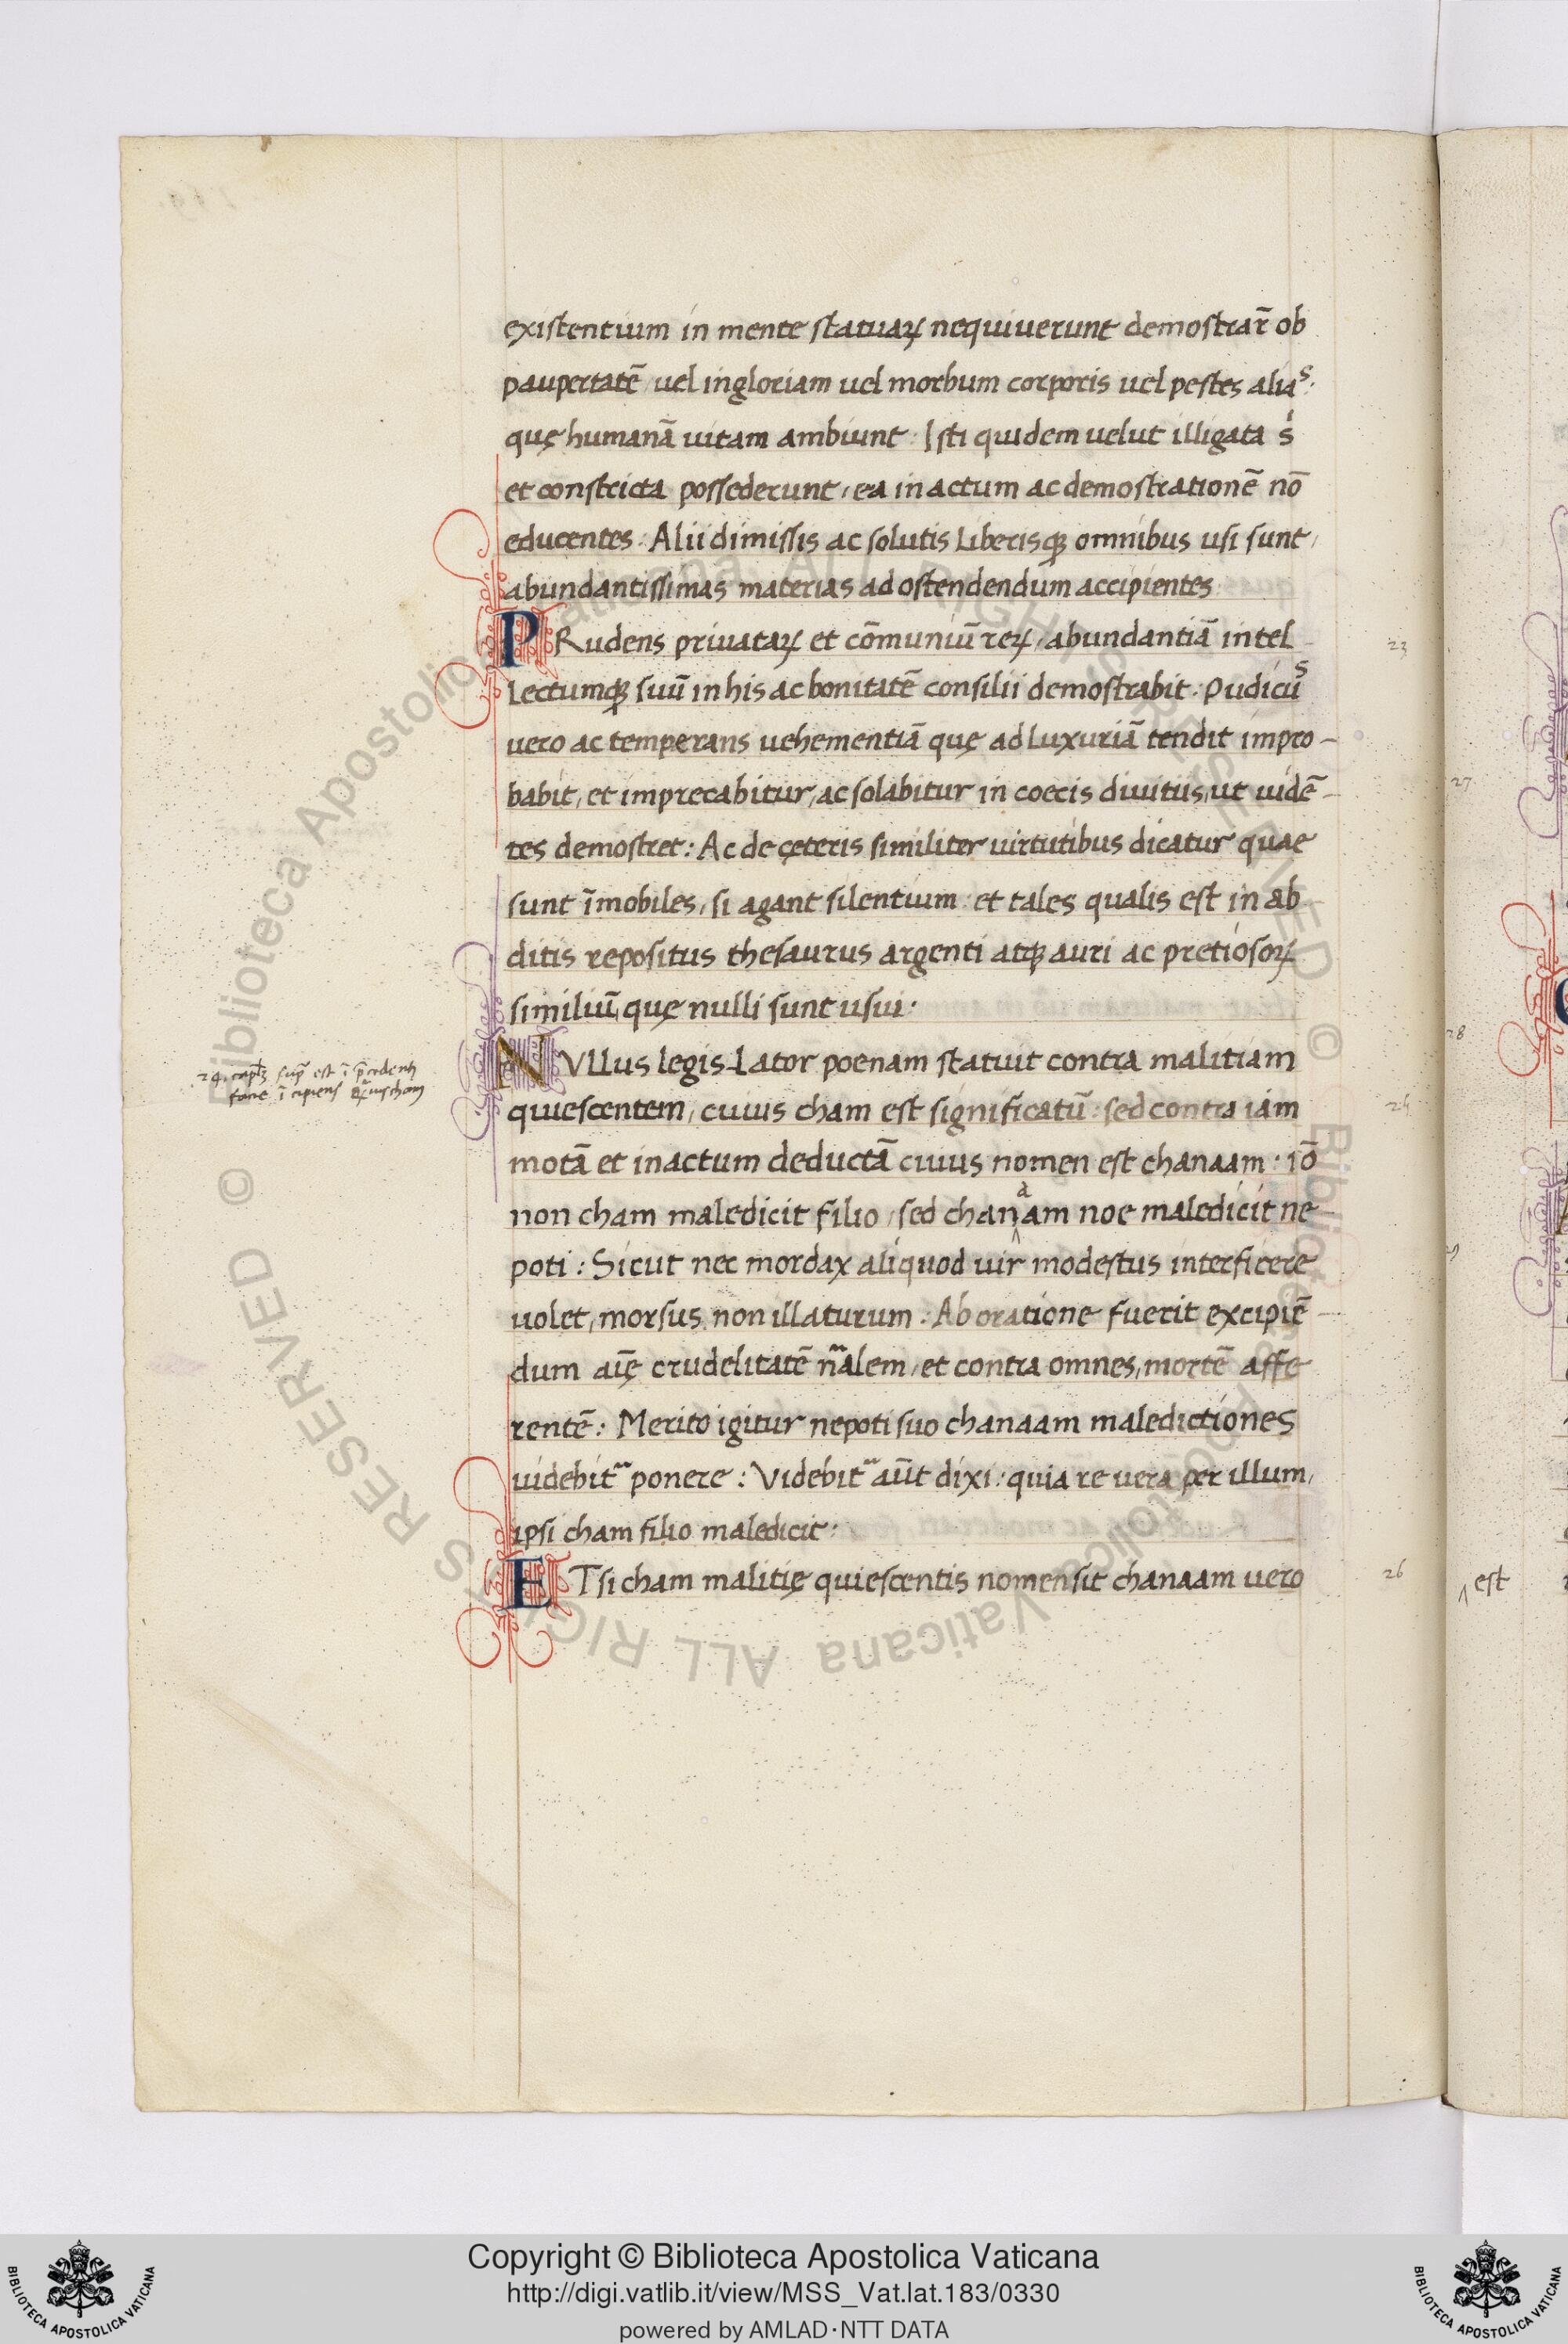 existentium in mente statuaꝝ nequiuerunt demostrar̄ ob
paupertatē / uel ingloriam uel morbum corporis uel pestes alias:
quę humanā uitam ambiunt: Isti quidem uelut illigata s
et constricta possederunt, ea in actum ac demostrationē nō
educentes: Alii dimissis ac solutis liberisqꝫ omnibus usi sunt,
abundantissimas materias ad ostendendum accipientes
PRudens priuataꝝ et cōmuniū reꝝ, abundantiā intel
lectumqꝫ suū in his ac bonitatē consilii demostrabit: Pudicus
uero ac temperans uehementiā quę ad luxuriā tendit impro-
babit, et imprecabitur, ac solabitur in coecis diuitiis, ut uidē-
tes demostret: Ac de ceteris similiter uirtutibus dicatur quae
sunt īmobiles, si agant silentium: et tales qualis est in ab
ditis repositus thesaurus argenti atqꝫ auri ac pretiosoꝝ
similiū, quę nulli sunt usui:
NVLlus legis-lator poenam statuit contra malitiam
quiescentem, cuius cham est significatū: sed contra iam
motā et inactum deductā cuius nomen est chanaam: iō
non cham maledicit filio, sed chanaam noe maledicit ne-
poti: Sicut nec mordax aliquod uir modestus interficere
uolet, morsus non illaturum: Ab oratione fuerit excipiē-
dum aīę crudelitatē nālem, et contra omnes, mortē affe
rentē: Merito igitur nepoti suo chanaam maledictiones
uidebit᷑ ponere: Videbit᷑ aūt dixi: quia re uera per illum,
ipsi cham filio maledicit:
ETsi cham malitię quiescentis nomen sit chanaam uero
23
24
26
27
28
29
est
Copyright © Biblioteca Apostolica Vaticana
http://digi.vatlib.it/view/MSS_Vat.lat.183/0330
powered by AMLAD·NTT DATA
BIBLIOTECA APOSTOLICA VATICANA
BIBLIOTECA APOSTOLICA VATICANA
© Biblioteca Apostolica Vaticana ALL RIGHTS RESERVED © Biblioteca Apostolica Vaticana ALL RIGHTS RESERVED